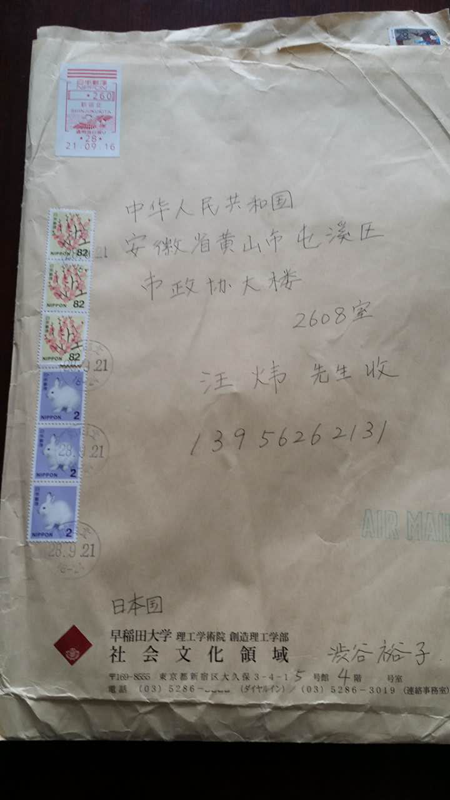 日本郵便
260
新宿北
28
21.09.16
82
NIPPON
82
NIPPON
82
NIPPON
21
2
NIPPON
2
NIPPON
28.9.21
2
NIPPON
28.9.21
中华人民共和国
安徽省黄山市屯溪区
市政协大楼
2608室
汪炜 先生收
13956262131
AIR MAI
日本国
早稲田大学 理工学術院 創造理工学部
社会文化領域 渋谷裕子
〒169-8555 東京都新宿区大久保3-4-1 5号館 4階 号室
電話 (03) 5286- (ダイヤルイン)／(03) 5286-3019 (連絡事務室)